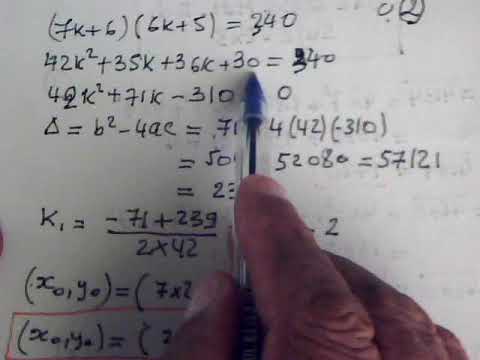 (7k+6)(6k+5) = 340
42k²+35k+36k+30=340
42k²+71k-310 0
Δ = b²-4ac = 71 4(42)(-310)
= 50 52080 = 57121
= 23
K₁ = (-71+239)/(2×42) 2
(x₀,y₀) = ( 7×2
(x₀,y₀) = ( 2